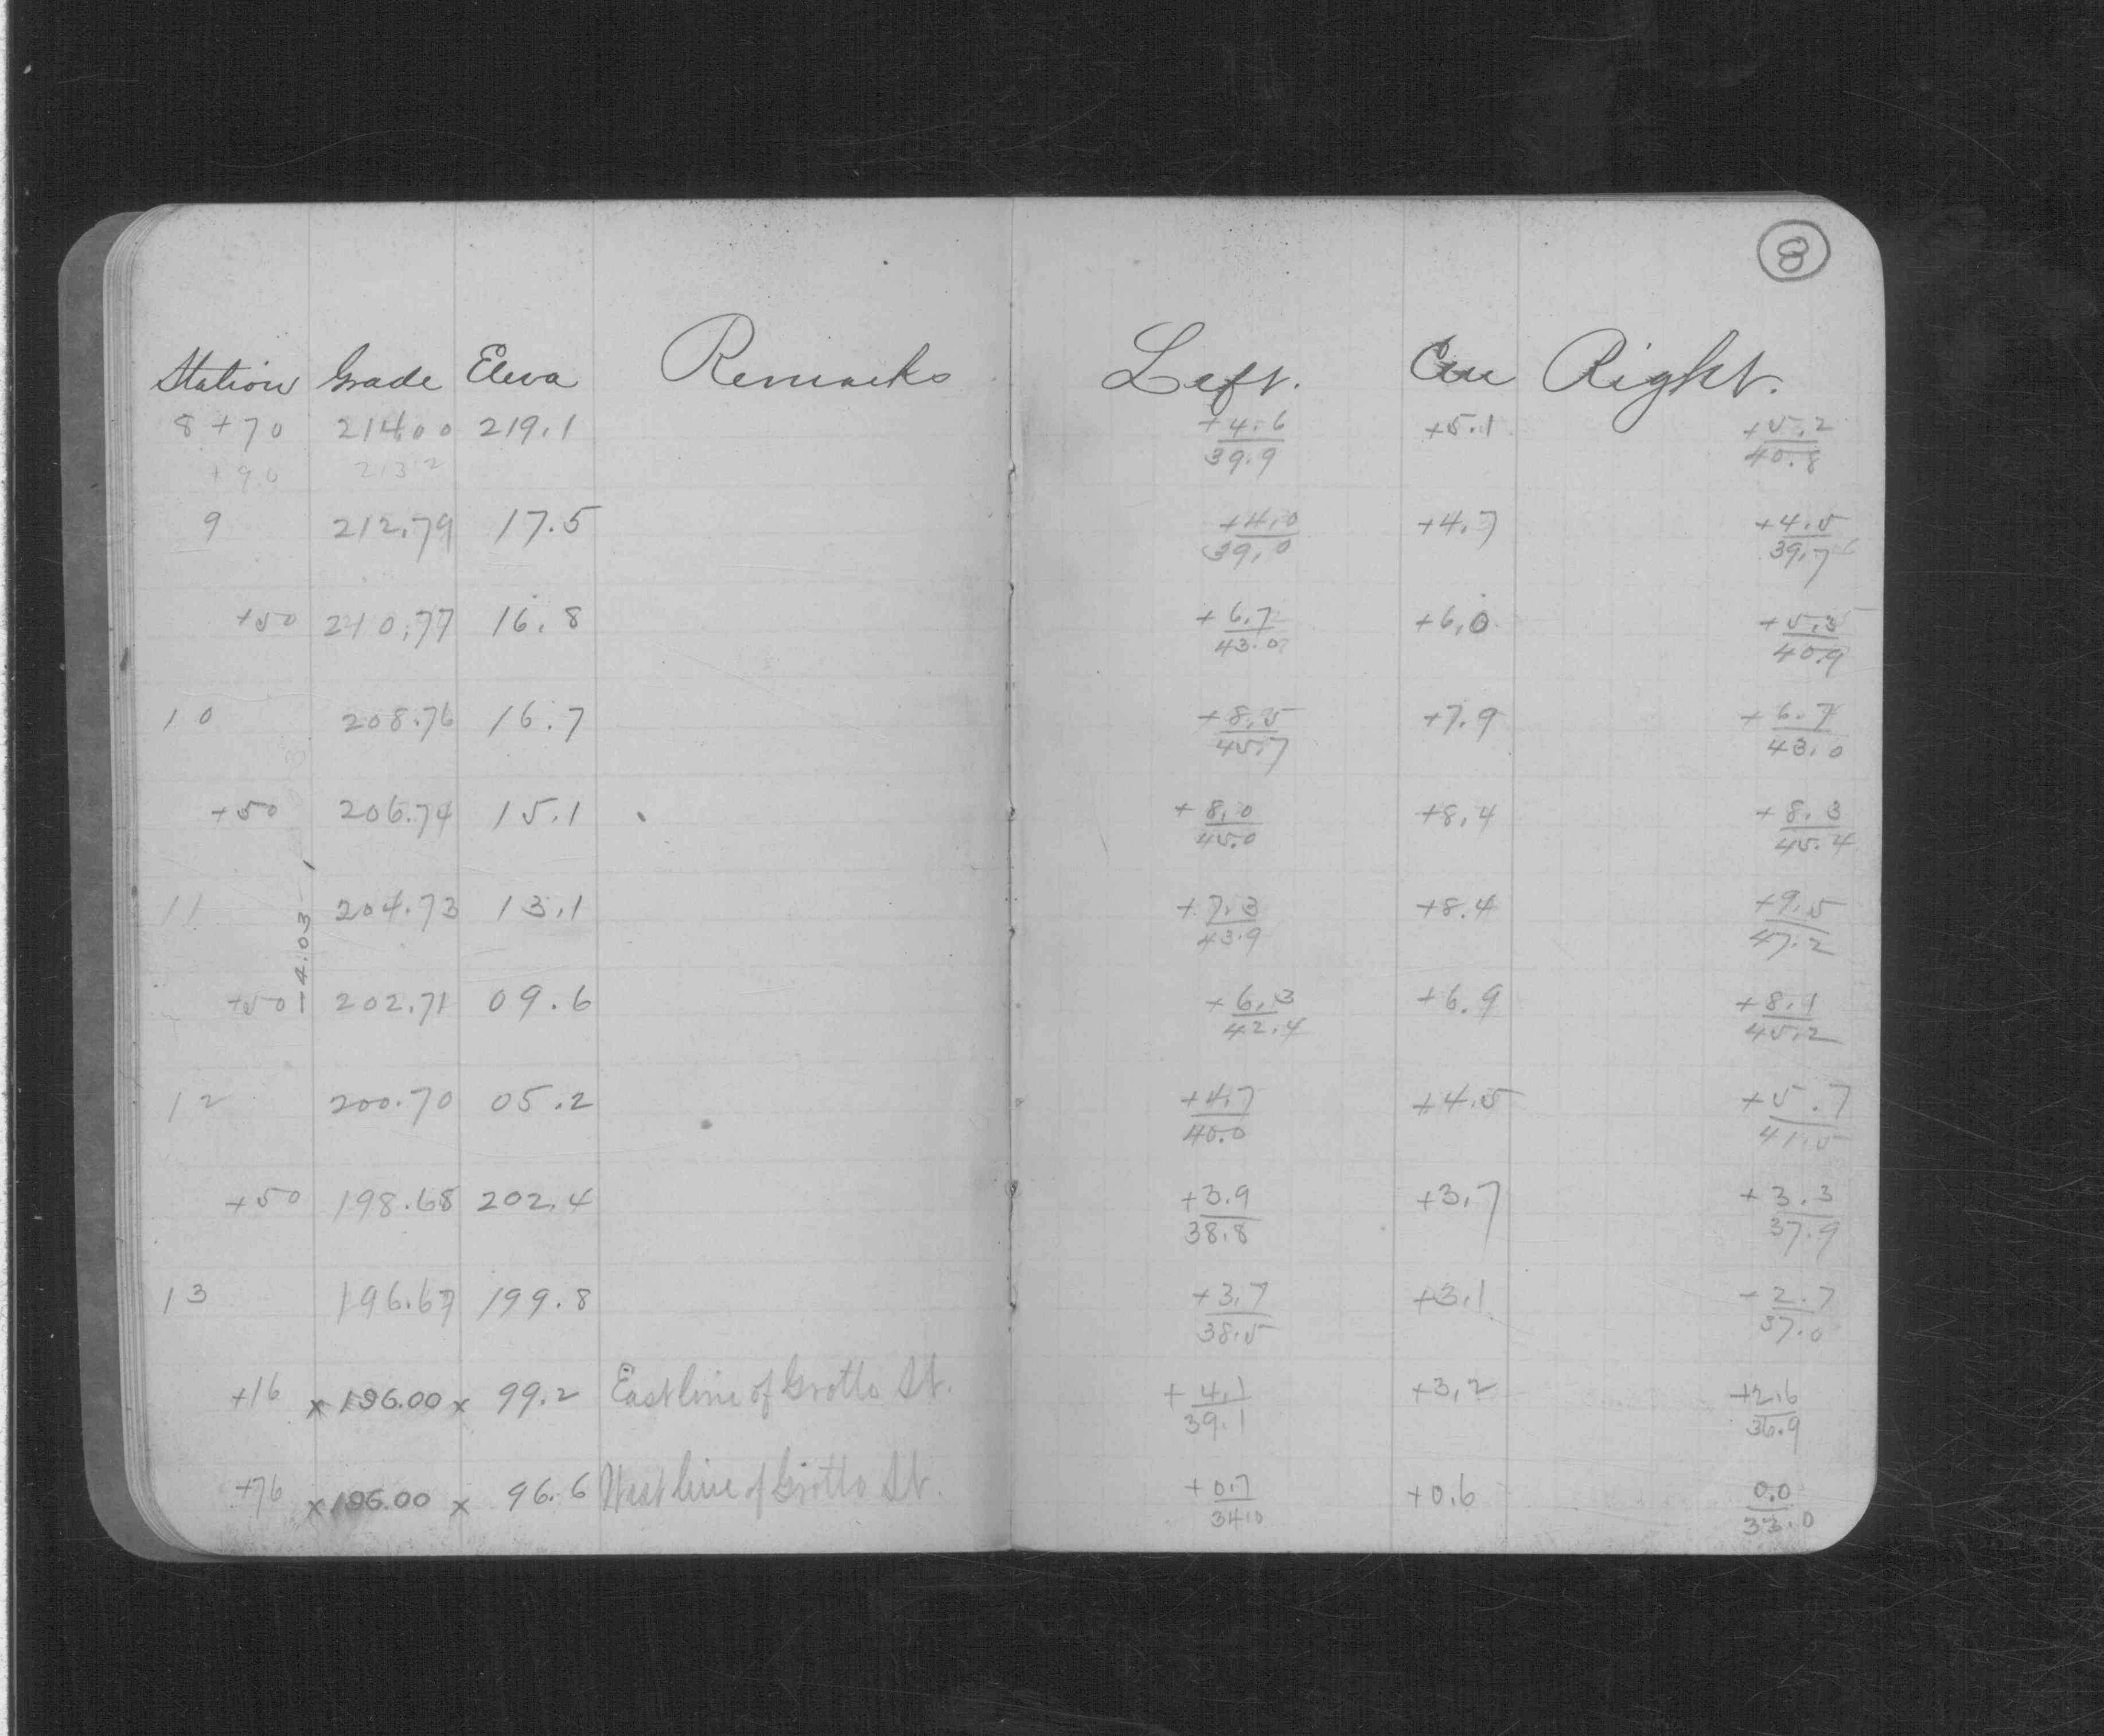 8
Station Grade Eleva Remarks Left. Cen Right.
8+70 214.00 219.1 +4.6/39.9 +5.1 +5.2/40.8
+90 213.2
9 212.79 17.5 +4.0/39.0 +4.7 +4.5/39.7
+50 210.77 16.8 +6.7/43.0 +6.0 +5.3/40.9
10 208.76 16.7 +8.5/45.7 +7.9 +6.7/43.0
+50 206.74 15.1 +8.0/45.0 +8.4 +8.3/45.4
11 204.73 13.1 +7.3/43.9 +8.4 +9.5/47.2
-4.03-
+50 202.71 09.6 +6.3/42.4 +6.9 +8.1/45.2
12 200.70 05.2 +4.7/40.0 +4.5 +5.7/41.5
+50 198.68 202.4 +3.9/38.8 +3.7 +3.3/37.9
13 196.67 199.8 +3.7/38.5 +3.1 +2.7/37.0
+16 x 196.00 x 99.2 East line of Grotto St. +4.1/39.1 +3.2 +2.6/36.9
+76 x 196.00 x 96.6 West line of Grotto St. +0.7/34.0 +0.6 0.0/33.0